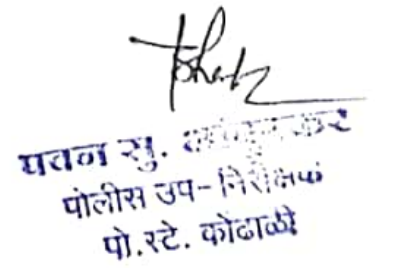 पवन सु.
पोलीस उप-निरीक्षक
पो.स्टे. कोंढाळी